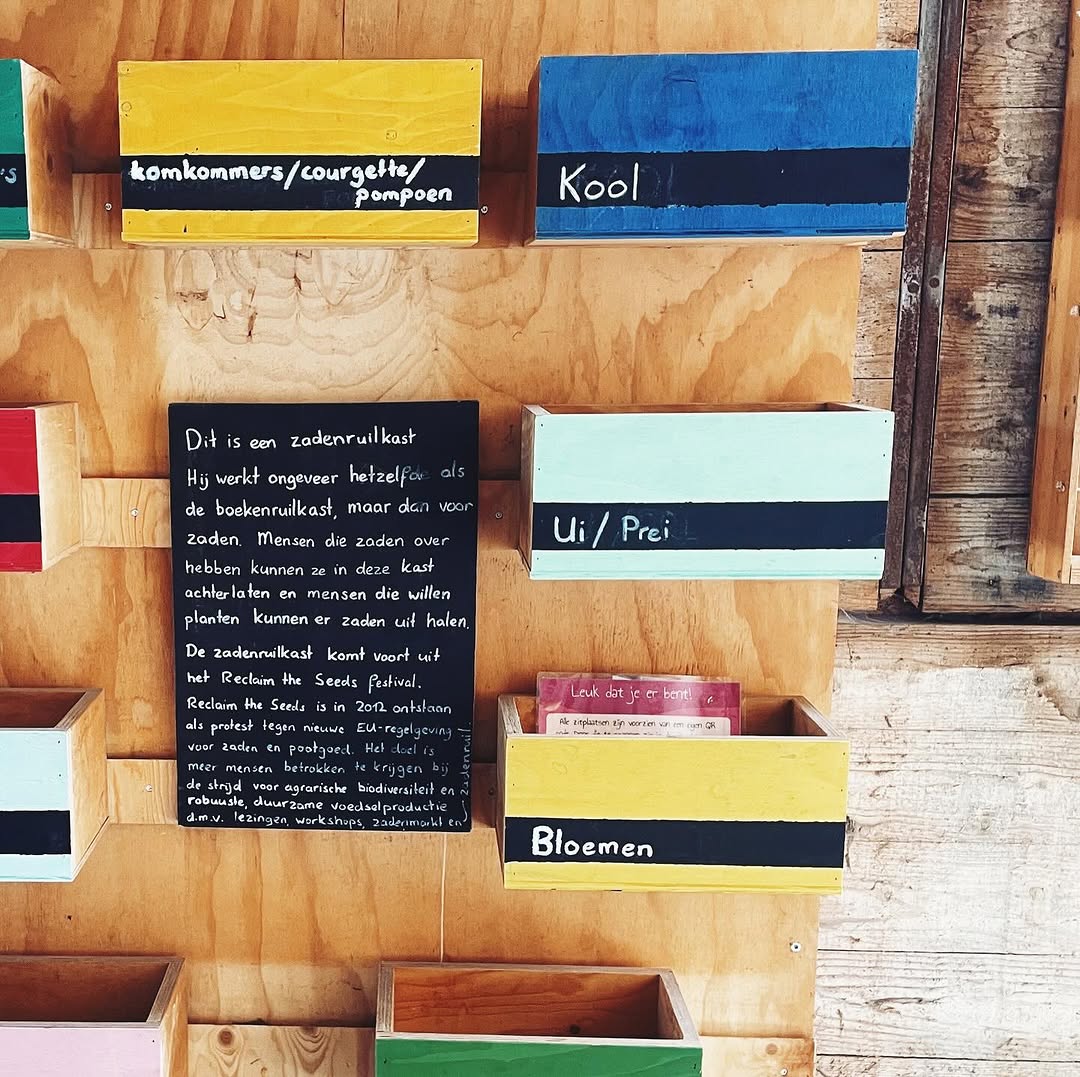 komkommers/courgette/
pompoen
Kool
Dit is een zadenruilkast
Hij werkt ongeveer hetzelfde als
de boekenruilkast, maar dan voor
zaden. Mensen die zaden over
hebben kunnen ze in deze kast
achterlaten en mensen die willen
planten kunnen er zaden uit halen.
De zadenruilkast komt voort uit
het Reclaim the Seeds festival.
Reclaim the Seeds is in 2012 ontstaan
als protest tegen nieuwe EU-regelgeving
voor zaden en pootgoed. Het doel is
meer mensen betrokken te krijgen bij
de strijd voor agrarische biodiversiteit en
robuuste, duurzame voedselproductie
d.m.v. lezingen, workshops, zadenmarkt en
zadenruil.
Ui / Prei
Leuk dat je er bent!
Alle zitplaatsen zijn voorzien van een eigen QR
Bloemen